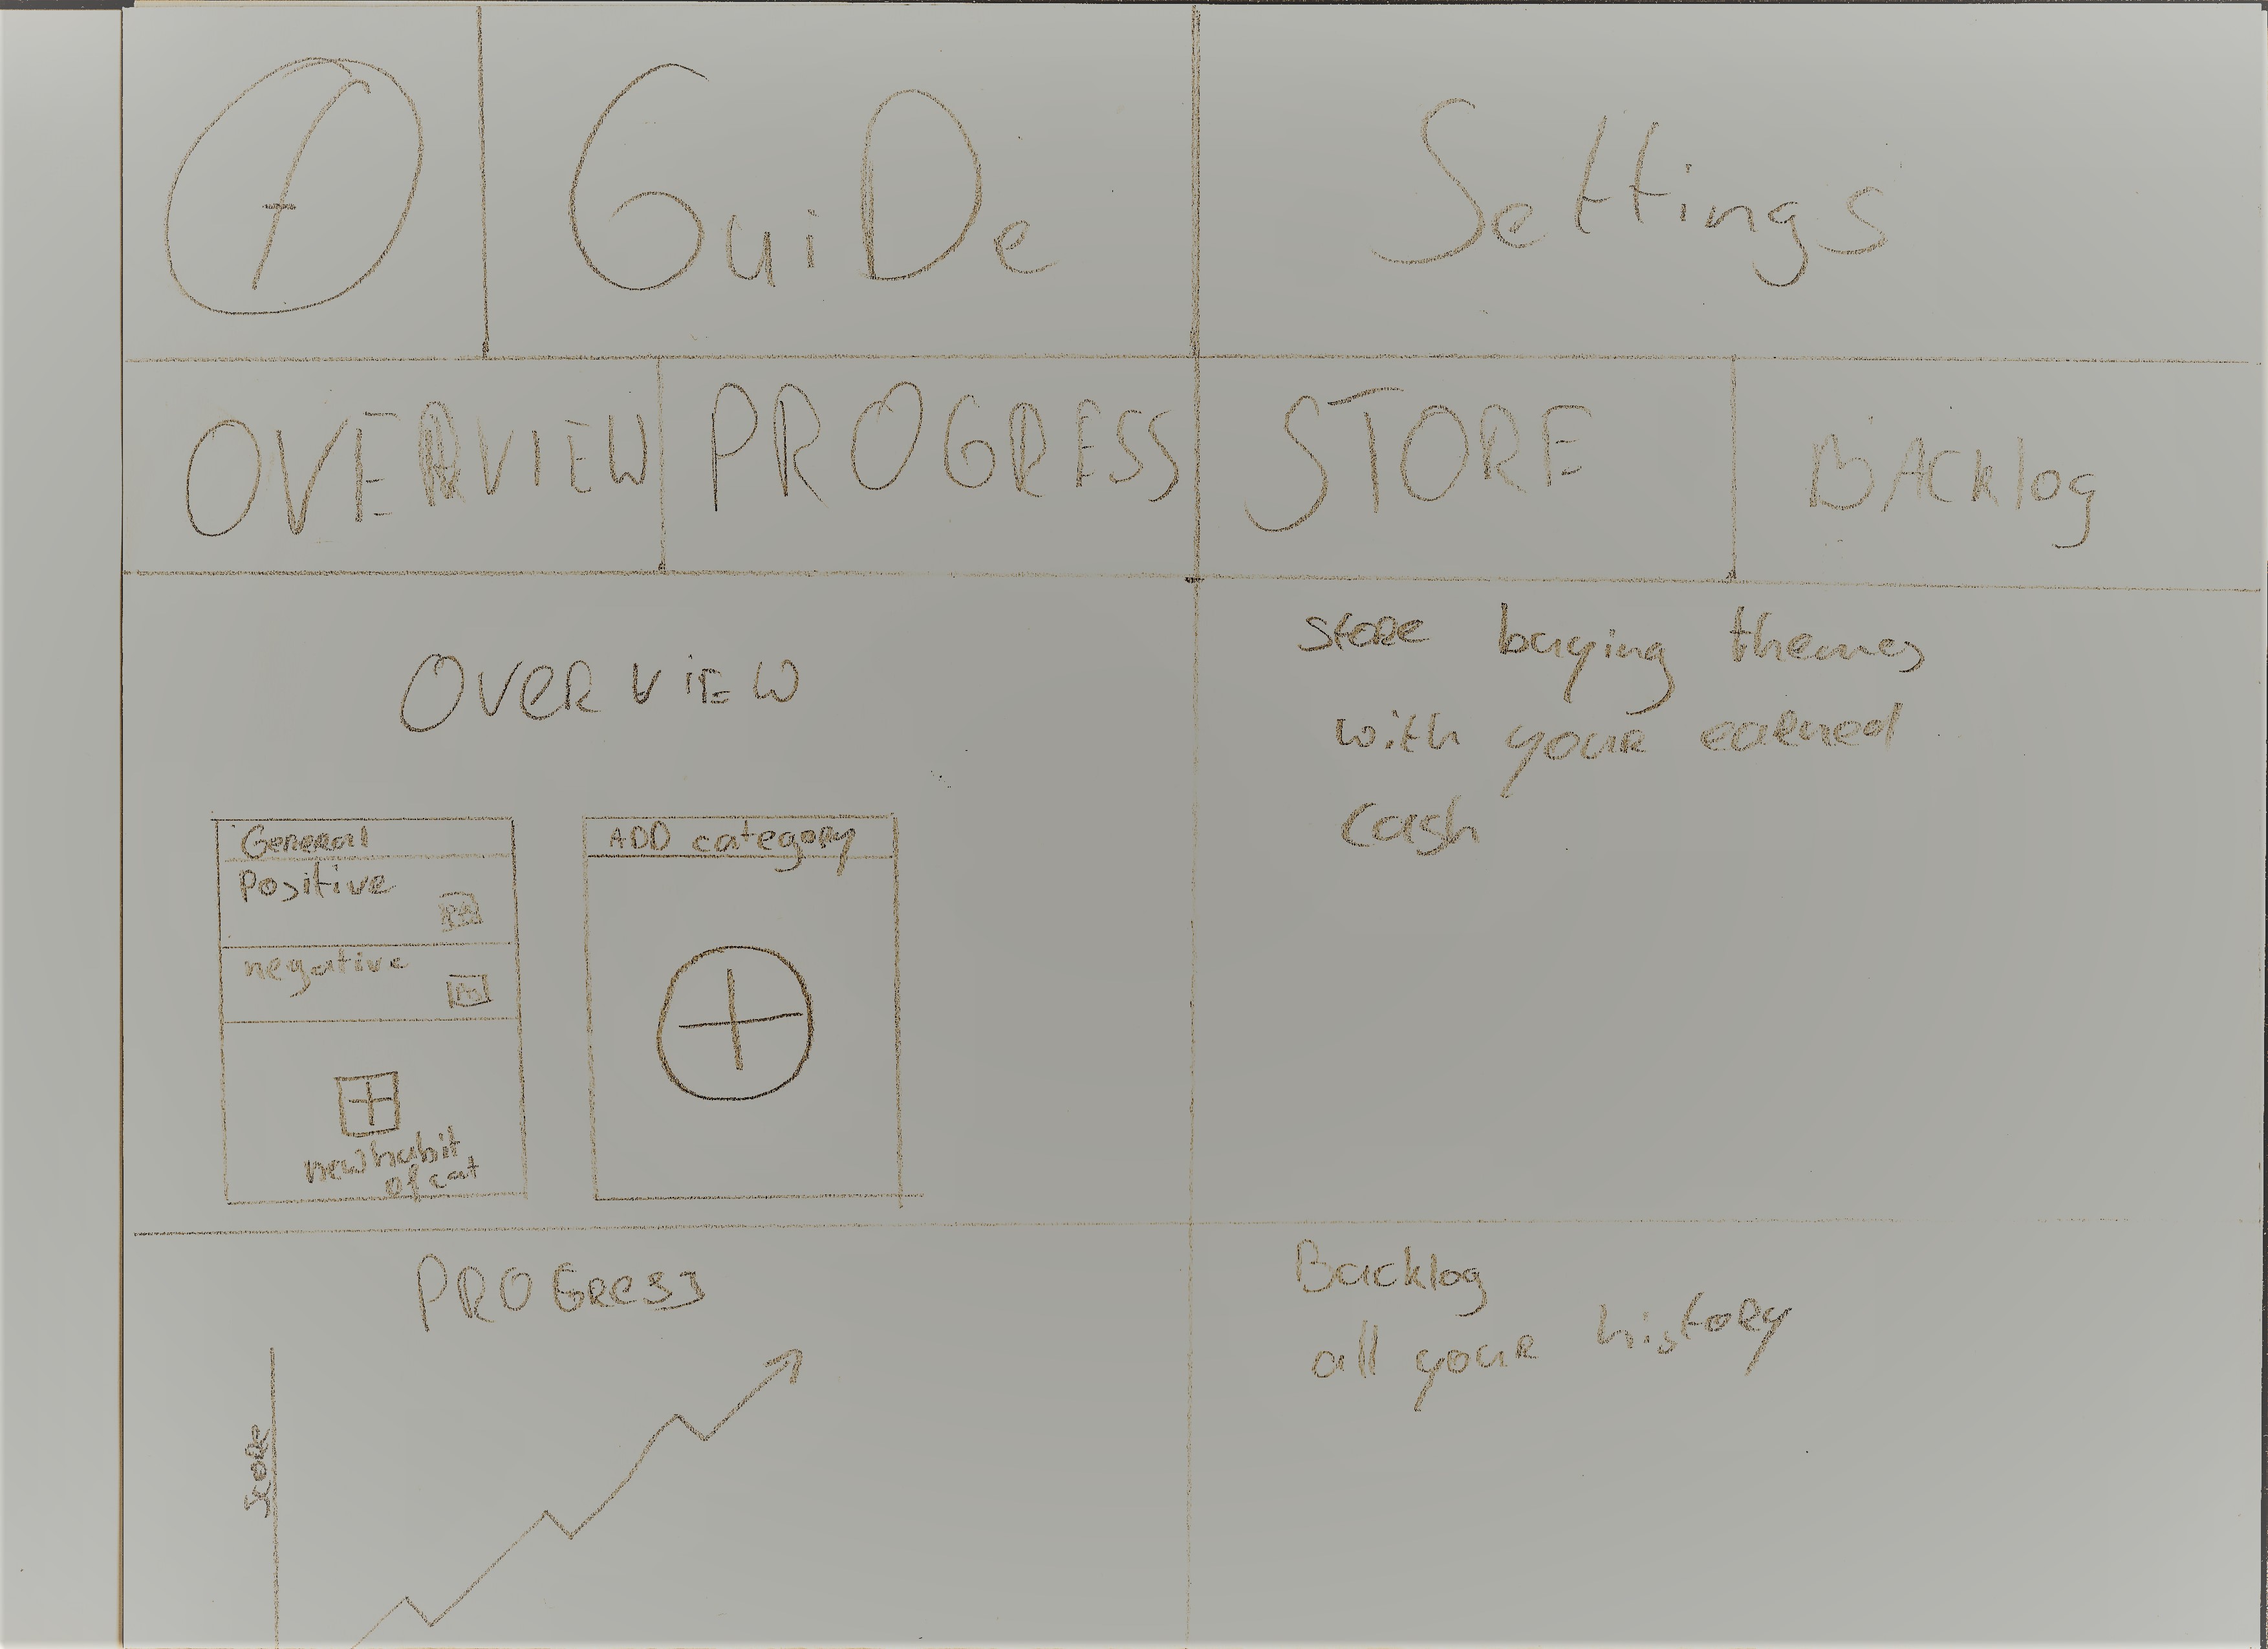 f
GuiDe
Settings
OVERVIEW
PROGRESS
STORE
BACKlog
OVERVIEW
General
Positive
negative
new habit
of cat
ADD category
store buying themes
with your earned
cash
PROGRESS
Score
Backlog
all your history